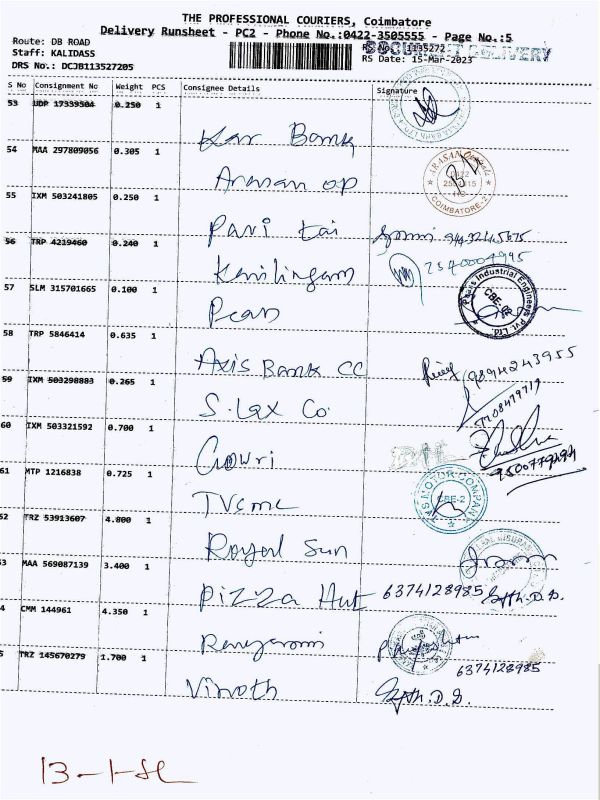 THE PROFESSIONAL COURIERS, Coimbatore
Delivery Runsheet - PC2 - Phone No.:0422-3505555 - Page No.:5
Route: DB ROAD
Staff: KALIDASS
DRS No.: DCJB113527205
DOCUMENT DELIVERY
RS No.: 1135272
RS Date: 15-Mar-2023
S No Consignment No Weight PCS Consignee Details Signature
53 UDP 17339504 0.250 1
Kar Bank
54 MAA 297809056 0.305 1
Arasan op
ARASAN
COIMBATORE-2
55 IXM 503241805 0.250 1
Pari tai
56 TRP 4219460 0.240 1
57 SLM 315701665 0.100 1
Industrial Engineers Pvt. Ltd.
CBE-2
58 TRP 5846414 0.635 1
Axis Bank CC
9894243955
59 IXM 503298883 0.265 1
S. Lax Co
60 IXM 503321592 0.700 1
Gowri
61 MTP 1216838 0.725 1
TVS MOTOR COMPANY
CBE-2
52 TRZ 53913607 4.800 1
Royal Sun
53 MAA 569087139 3.400 1
Pizza Hut 6374128985
4 CMM 144961 4.350 1
5 TRZ 145670279 1.700 1
6374128985
Vinoth